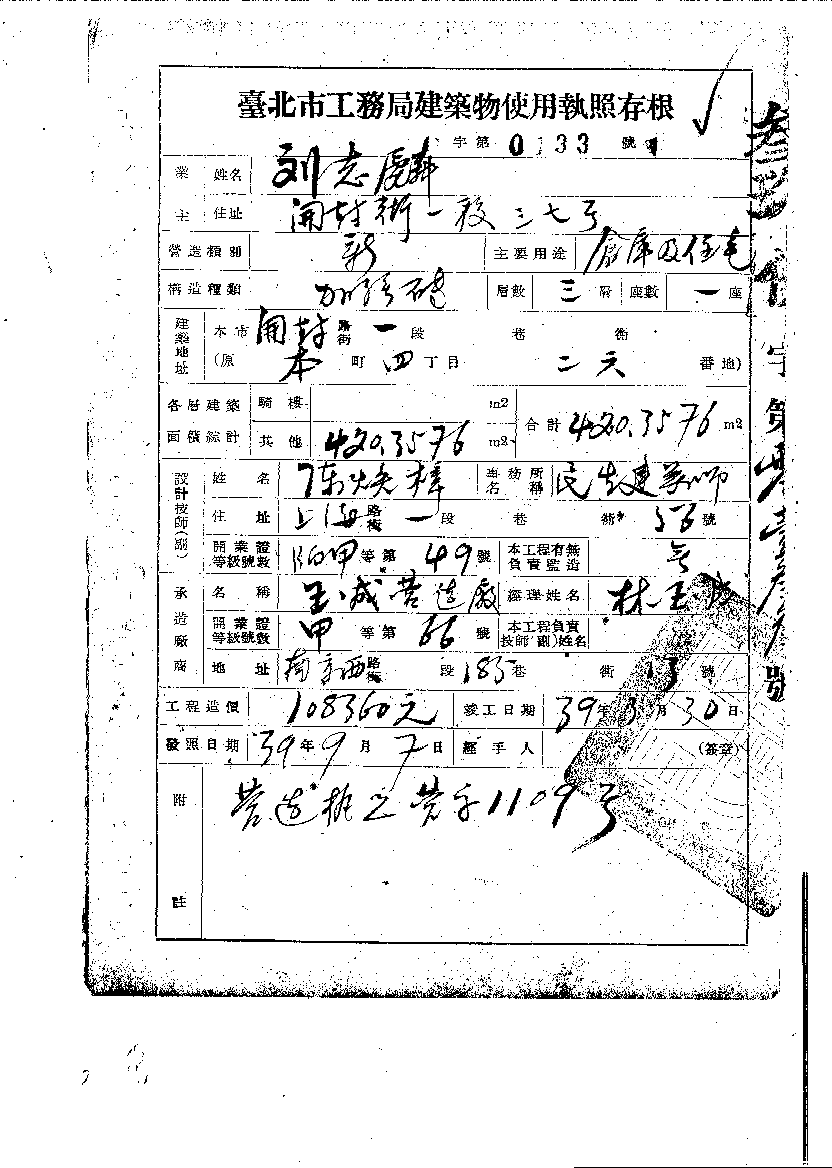 臺北市工務局建築物使用執照存根
字第 0133 號
業主 姓名 刘志
住址 開封街一段三七号
營造類別 新 主要用途 倉庫及住宅
構造種類 加強磚 層數 三層 座數 一座
建築地址 本市 開封 路街 一段 巷 衖
(原 本町四丁目 二六 番地)
各層建築面積綜計 騎樓 m2 合計 420.3576 m2
其他 420.3576 m2
設計技師(副) 姓名 陈焕樟 事務所名稱 民生建築師
住址 上海 路街 一段 巷 衖 56 號
開業證等級號數 甲等第 49 號 本工程有無負責監造 無
承造廠商 名稱 玉成营造廠 經理姓名 林玉成
開業證等級號數 甲等第 66 號 本工程負責技師(副)姓名
地址 南京西 路街 段 185 巷 衖 13 號
工程造價 108360元 竣工日期 39年 月30日
發照日期 39年9月7日 經手人 (簽章)
附註 营造執照营字1109号
字第 號